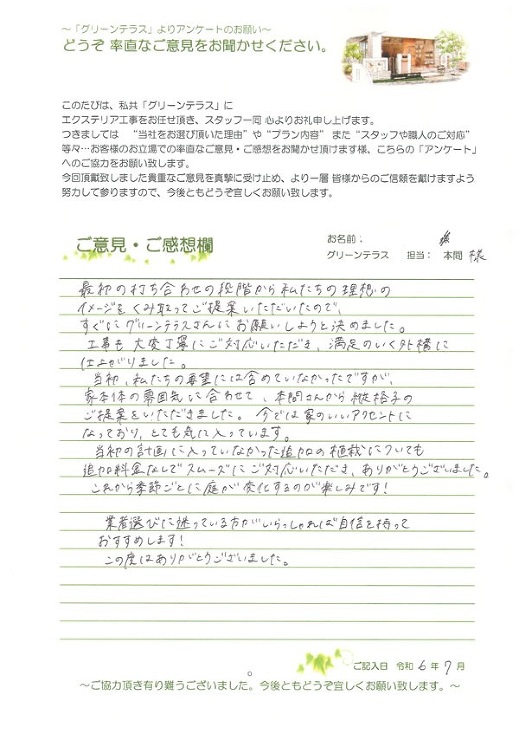 ～「グリーンテラス」よりアンケートのお願い～
どうぞ 率直なご意見をお聞かせください。
このたびは、私共「グリーンテラス」に
エクステリア工事をお任せ頂き、スタッフ一同 心よりお礼申し上げます。
つきましては “当社をお選び頂いた理由” や “プラン内容” また “スタッフや職人のご対応”
等々…お客様のお立場での率直なご意見・ご感想をお聞かせ頂けます様、こちらの「アンケート」
へのご協力をお願い致します。
今回頂戴致しました貴重なご意見を真摯に受け止め、より一層 皆様からのご信頼を戴けますよう
努力して参りますので、今後ともどうぞ宜しくお願い致します。
ご意見・ご感想欄
お名前： 様
グリーンテラス 担当： 本間 様
最初の打ち合わせの段階から私たちの理想の
イメージをくみ取ってご提案いただいたので、
すぐにグリーンテラスさんにお願いしようと決めました。
工事も大変丁寧にご対応いただき、満足のいく外構に
仕上がりました。
当初、私たちの要望には含めていなかったですが、
家本体の雰囲気に合わせて、本間さんから縦格子の
ご提案をいただきました。今では家のいいアクセントに
なっており、とても気に入っています。
当初の計画に入っていなかった追加の植栽についても
追加料金なしでスムーズにご対応いただき、ありがとうございました。
これから季節ごとに庭が変化するのが楽しみです！
業者選びに迷っている方がいらっしゃれば自信を持って
おすすめします！
この度はありがとうございました。
ご記入日 令和 6 年 7 月
～ご協力頂き有り難うございました。今後ともどうぞ宜しくお願い致します。～